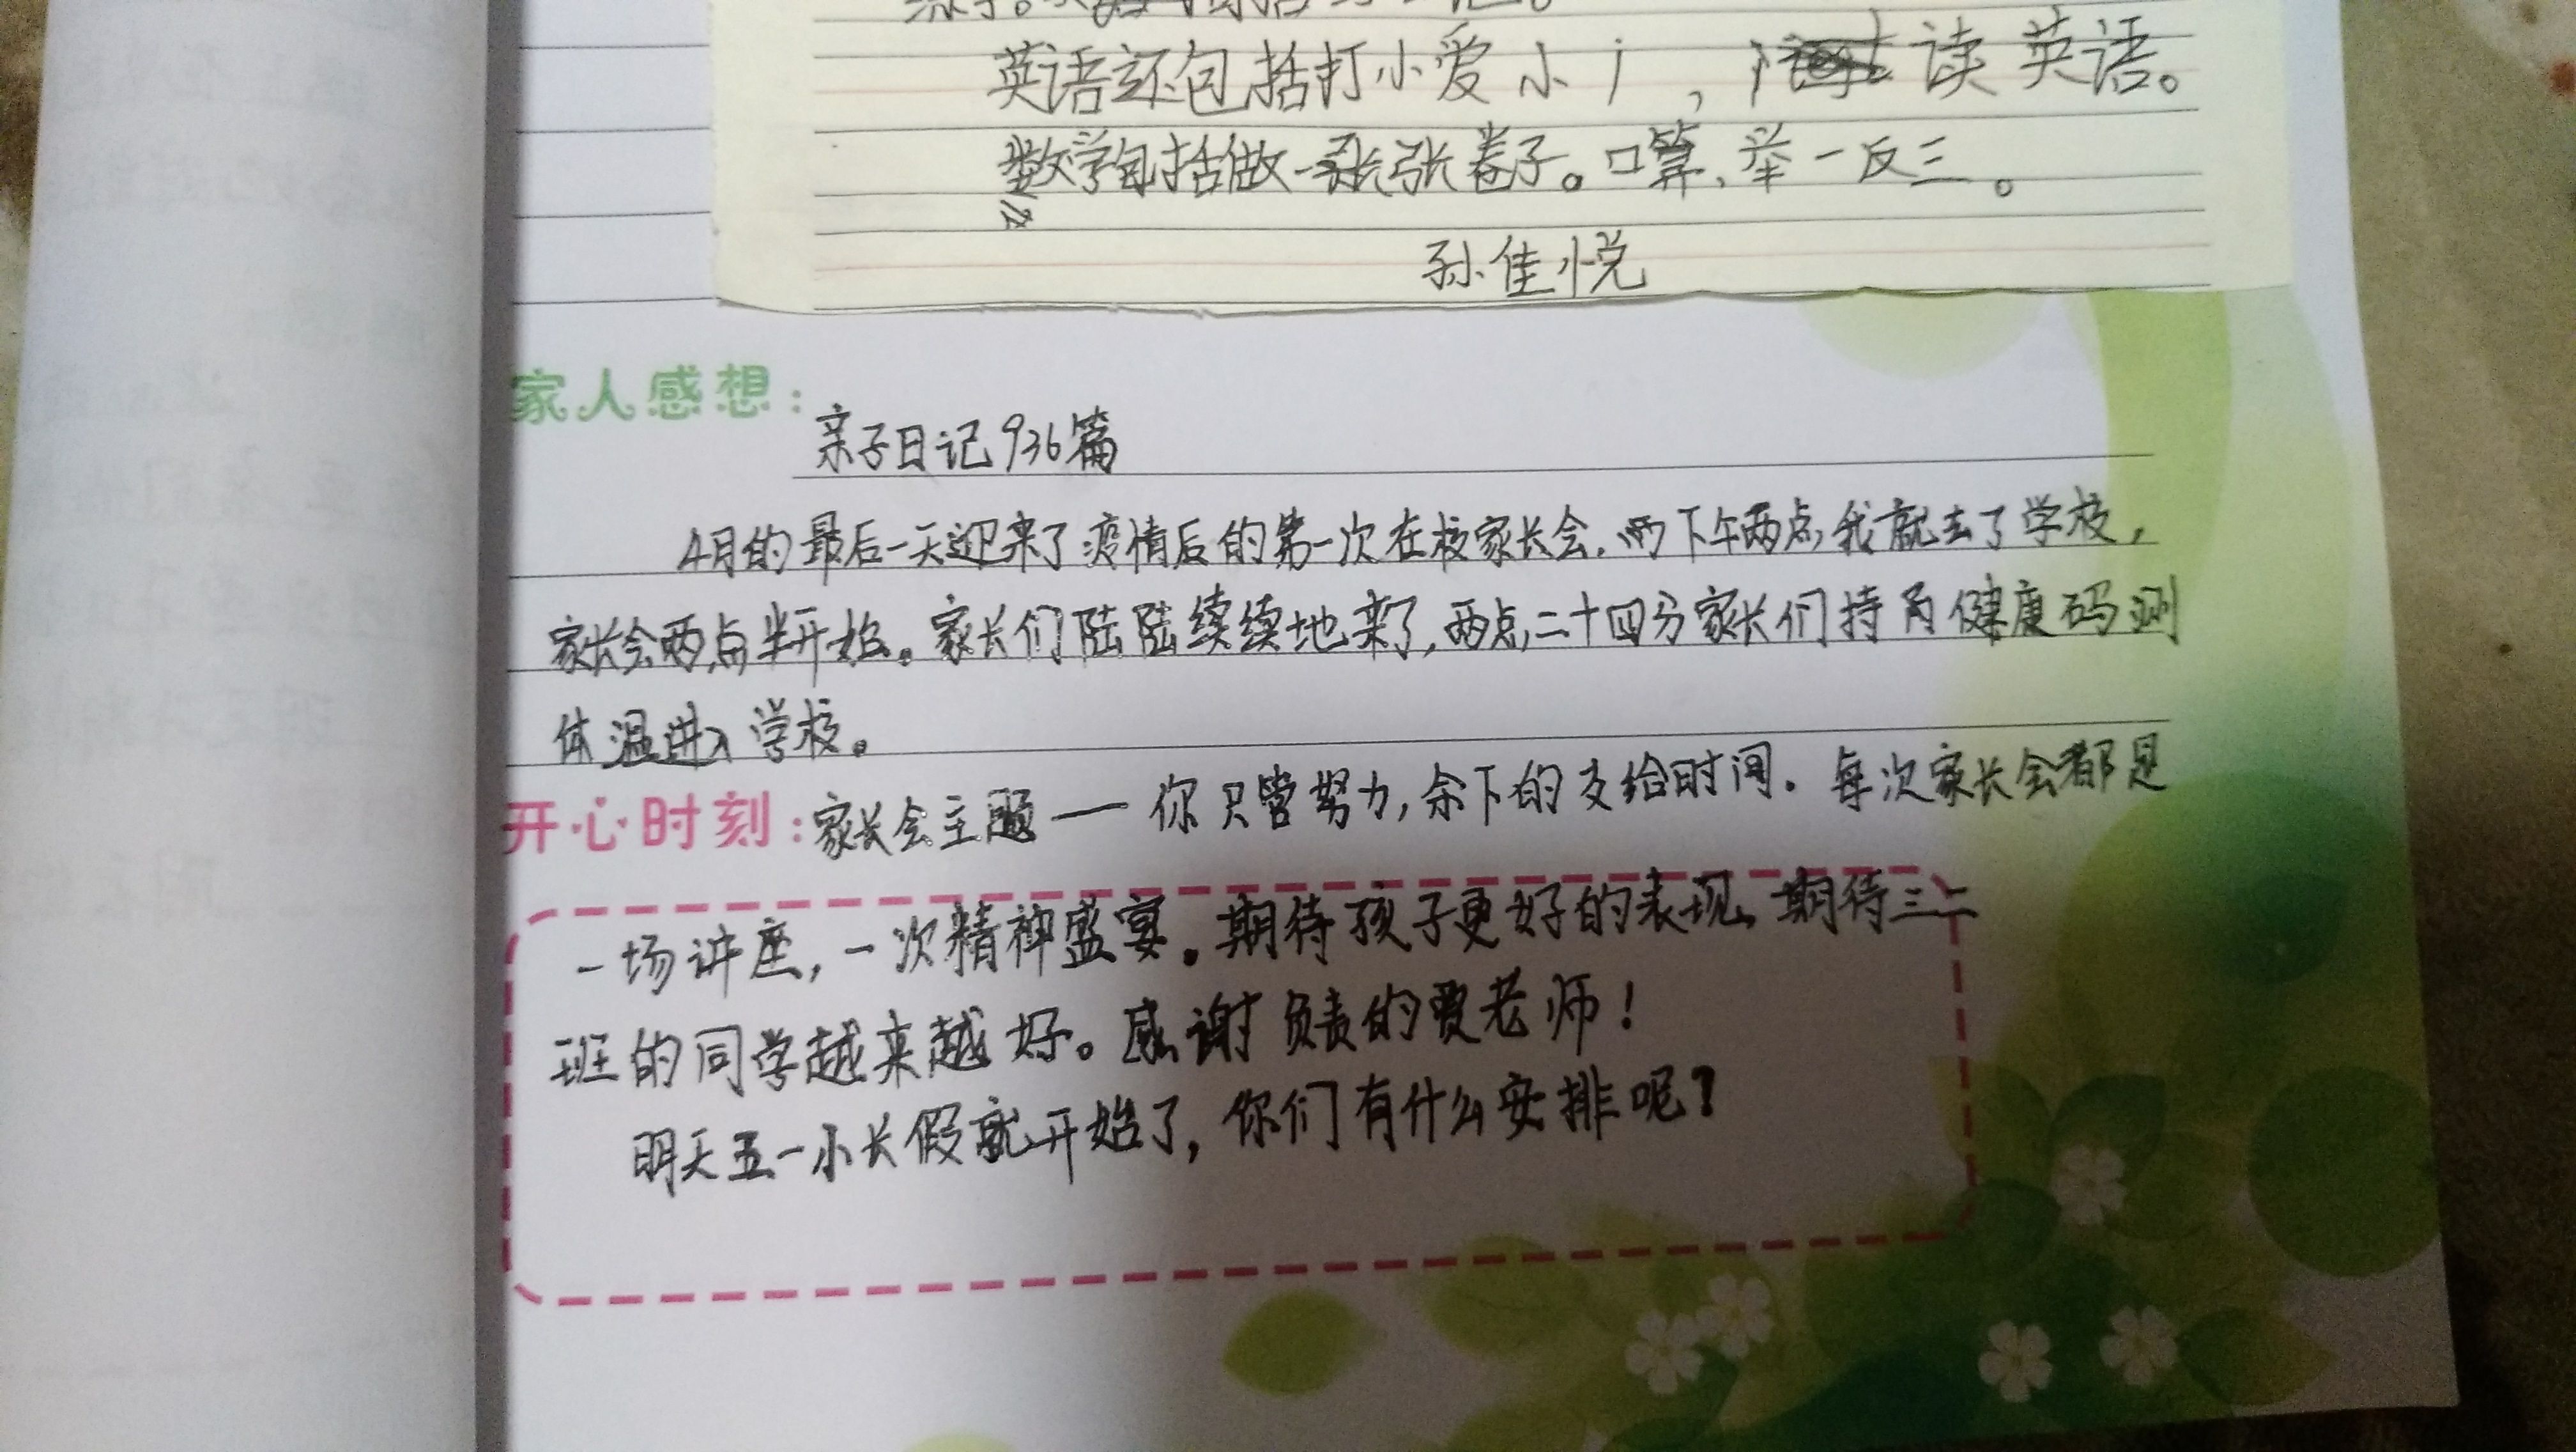 英语还包括打小爱小，读英语。
数学包括做一张张卷子。口算、举一反三。
孙佳悦
家人感想：
亲子日记936篇
4月的最后一天迎来了疫情后的第一次在校家长会.下午两点我就去了学校，
家长会两点半开始。家长们陆陆续续地来了,两点二十四分家长们持有健康码测
体温进入学校。
开心时刻：家长会主题——你只管努力,余下的交给时间.每次家长会都是
一场讲座,一次精神盛宴。期待孩子更好的表现,期待三二
班的同学越来越好。感谢负责的贾老师！
明天五一小长假就开始了,你们有什么安排呢？